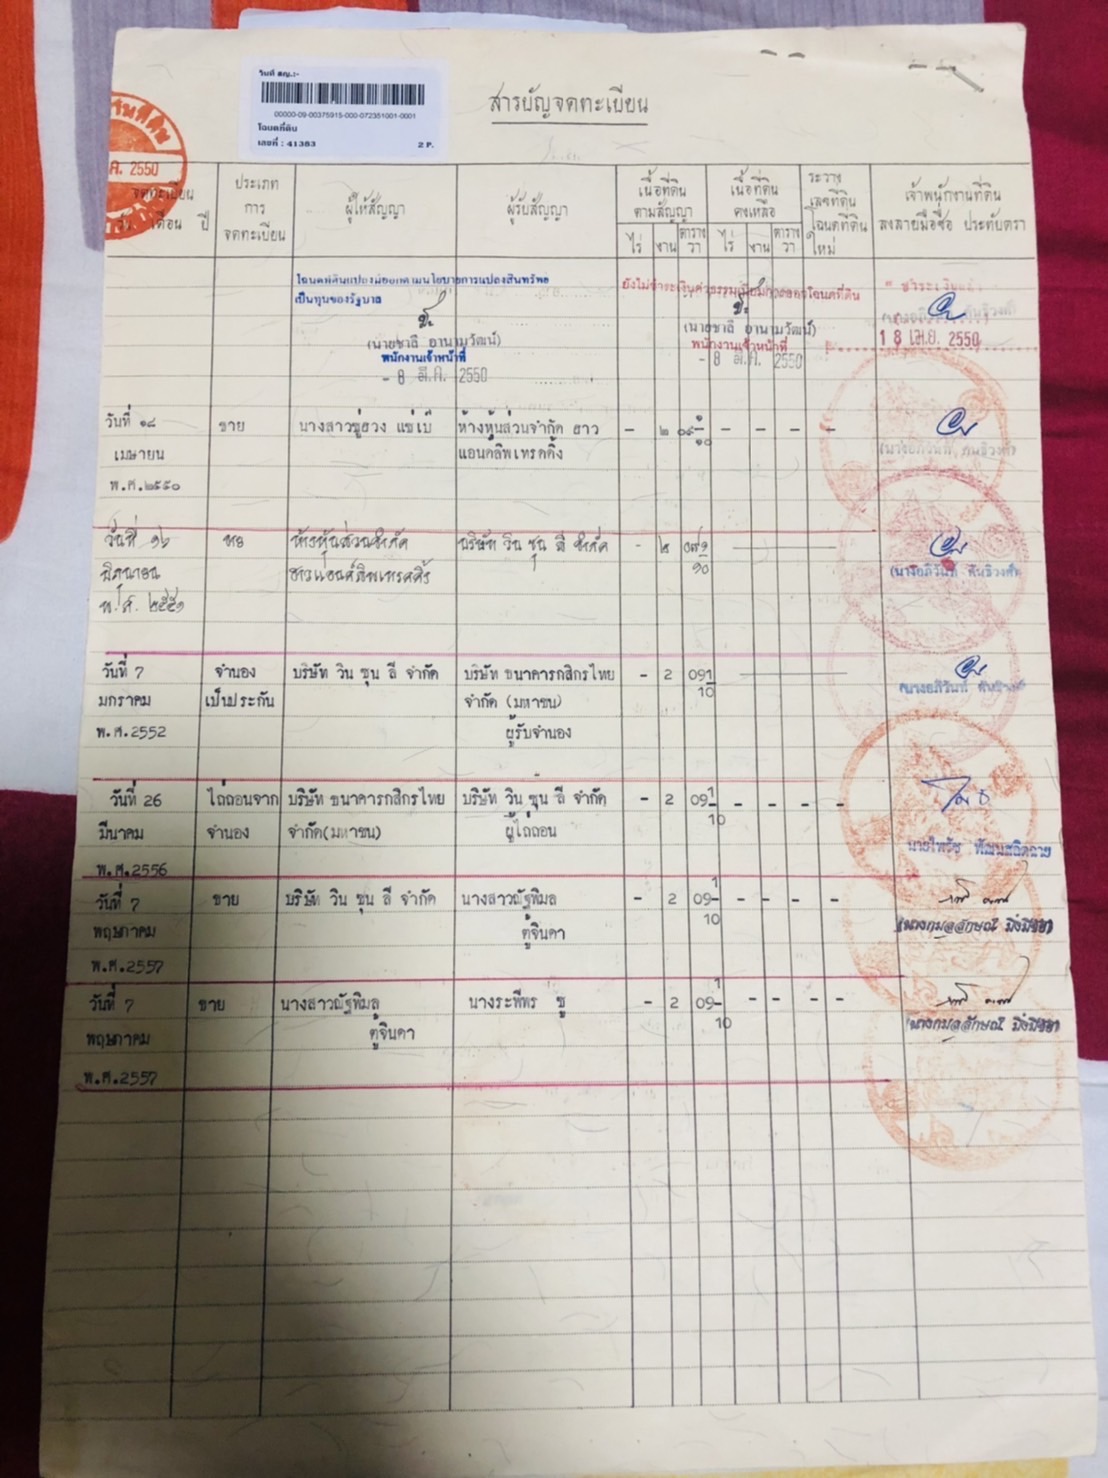 วันที่ สญ.:-
00000-09-00375915-000-072351001-0001
โฉนดที่ดิน
เลขที่ : 41383 2 P.
สารบัญจดทะเบียน
ค. 2550
จดทะเบียน
เดือน ปี
ประเภท
การ
จดทะเบียน
ผู้ให้สัญญา
ผู้รับสัญญา
เนื้อที่ดิน
ตามสัญญา
ไร่ งาน ตาราง
วา
เนื้อที่ดิน
คงเหลือ
ไร่ งาน ตาราง
วา
ระวาง
เลขที่ดิน
โฉนดที่ดิน
ใหม่
เจ้าพนักงานที่ดิน
ลงลายมือชื่อ ประทับตรา
โฉนดที่ดินแปลงนี้ออกตามนโยบายการแปลงสินทรัพย์
เป็นทุนของรัฐบาล
(นายชาลี อานามวัฒน์)
พนักงานเจ้าหน้าที่
- 8 มี.ค. 2550
ยังไม่ชำระเงินค่าธรรมเนียมการออกโฉนดที่ดิน
(นายชาลี อานามวัฒน์)
พนักงานเจ้าหน้าที่
- 8 มี.ค. 2550
18 เม.ย. 2550
วันที่ ๑๘ ขาย ห้างหุ้นส่วนจำกัด ฮาว - ๒ ๐๙ ๑/๑๐ - - - -
เมษายน แอนด์ลิพเทรดดิ้ง
พ.ศ.๒๕๕๐
วันที่ ๑๖ ห้างหุ้นส่วนจำกัด บริษัท วิน ชุน ลี จำกัด - ๒ ๐๙ ๑/๑๐
มิถุนายน ฮาวแอนด์ลิพเทรดดิ้ง
พ.ศ. ๒๕๕๑
วันที่ 7 จำนอง บริษัท วิน ชุน ลี จำกัด บริษัท ธนาคารกสิกรไทย - 2 09 1/10
มกราคม เป็นประกัน จำกัด (มหาชน)
พ.ศ.2552 ผู้รับจำนอง
วันที่ 26 ไถ่ถอนจาก บริษัท ธนาคารกสิกรไทย บริษัท วิน ชุน ลี จำกัด - 2 09 1/10 - - - -
มีนาคม จำนอง จำกัด(มหาชน) ผู้ไถ่ถอน
พ.ศ.2556
วันที่ 7 ขาย บริษัท วิน ชุน ลี จำกัด นางสาวณัฐทิมล - 2 09 1/10 - - - -
พฤษภาคม ตู้จินดา
พ.ศ.2557
วันที่ 7 ขาย นางสาวณัฐทิมล นางระพีพร ชู - 2 09 1/10 - - - -
พฤษภาคม ตู้จินดา
พ.ศ.2557